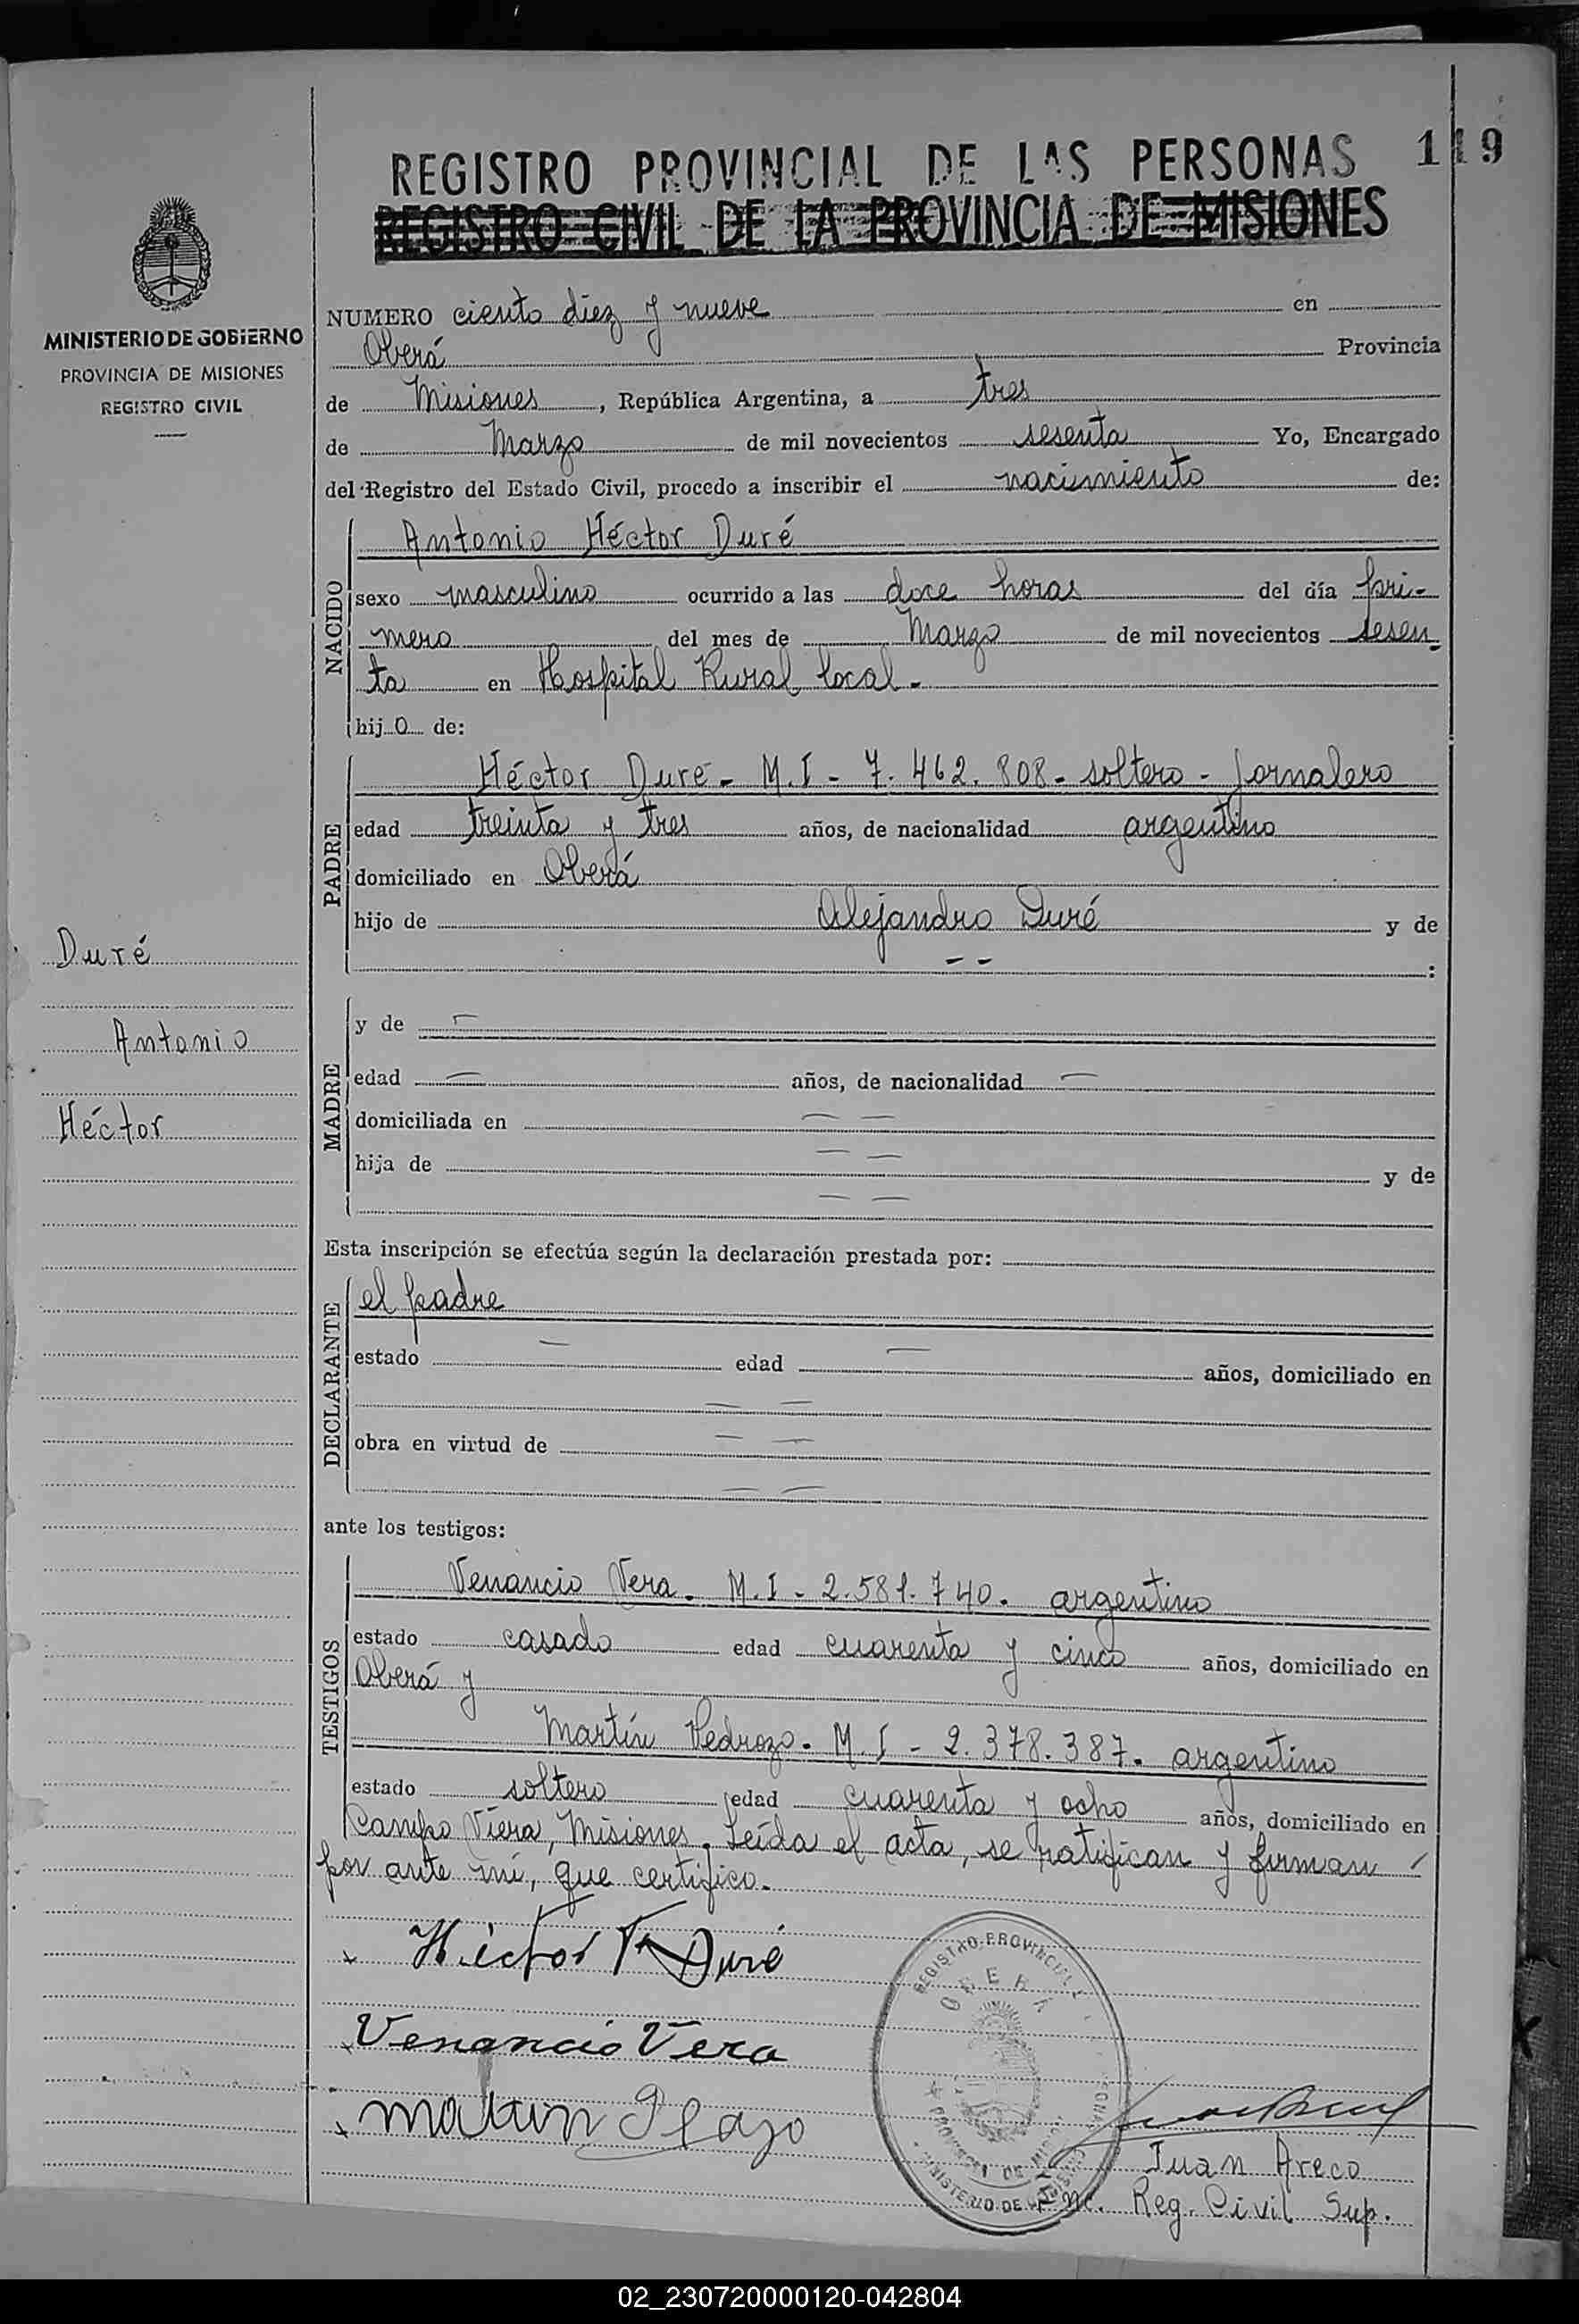 REGISTRO PROVINCIAL DE LAS PERSONAS 119
REGISTRO CIVIL DE LA PROVINCIA DE MISIONES
MINISTERIO DE GOBIERNO
PROVINCIA DE MISIONES
REGISTRO CIVIL
NUMERO ciento diez y nueve en
Oberá Provincia
de Misiones, República Argentina, a tres
de Marzo de mil novecientos sesenta Yo, Encargado
del Registro del Estado Civil, procedo a inscribir el nacimiento de:
NACIDO
Antonio Héctor Duré
sexo masculino ocurrido a las doce horas del día pri-
mero del mes de Marzo de mil novecientos sesen-
ta en Hospital Rural local.-
hijo de:
PADRE
Héctor Duré - M.I - 7.462.808 - soltero - Jornalero
edad treinta y tres años, de nacionalidad argentino
domiciliado en Oberá
hijo de Alejandro Duré y de
- - :
Duré
Antonio
Héctor
MADRE
y de -
edad - años, de nacionalidad -
domiciliada en - -
hija de - - y de
- -
Esta inscripción se efectúa según la declaración prestada por:
DECLARANTE
el padre
estado - edad - años, domiciliado en
- -
obra en virtud de - -
- -
ante los testigos:
TESTIGOS
Venancio Vera. M.I - 2.581.740. argentino
estado casado edad cuarenta y cinco años, domiciliado en
Oberá y
Martín Pedrozo. M.I - 2.378.387. argentino
estado soltero edad cuarenta y ocho años, domiciliado en
Campo Viera, Misiones. Leída el acta, se ratifican y firman
por ante mí, que certifico.
Héctor Duré
Venancio Vera
REGISTRO PROVINCIAL
OBERÁ
PROVINCIA DE MISIONES
MINISTERIO DE
Juan Areco
Enc. Reg. Civil Sup.
02_230720000120-042804